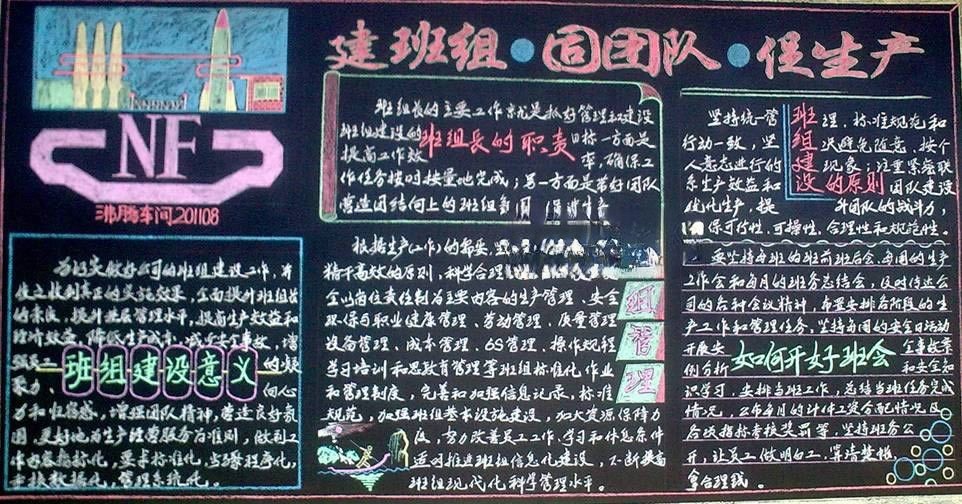 建班组·固团队·促生产
NF
沸腾车间201108
班组建设意义
为切实做好公司的班组建设工作，并
使之收到真正的实施效果，全面提升班组长
的素质，提升基层管理水平，提高生产效益和
经济效益，降低生产成本，减少安全事故，增
强员工 的凝
聚力、 向心
力和归宿感，增强团队精神，营造良好氛
围，更好地为生产经营服务为准则，做到工
作内容指标化，要求标准化，步骤程序化，
考核数据化，管理系统化。
班组长的职责
班组长的主要工作就是抓好管理和建设
班组建设的 目标一方面是
提高工作效 率，确保工
作任务按时按量地完成；另一方面是带好团队
营造团结向上的班组氛围
班组管理
根据生产(工作)的需要，
精干高效的原则，科学合理
全以岗位责任制为主要内容的生产管理、安全
环保与职业健康管理、劳动管理、质量管理
设备管理、成本管理、6S管理、操作规程
学习培训和思政教育管理等班组标准化作业
和管理制度，完善和加强信息记录，标准
规范，加强班组基本设施建设，加大资源保障力
度，努力改善员工工作、学习和休息条件
适时推进班组信息化建设，不断提高
班组现代化科学管理水平。
班组建设的原则
坚持统一管 理、标准规范和
行动一致，坚 决避免随意、按个
人意志进行的 现象；注重紧密联
系生产效益和 团队建设
优化生产，提 升团队的战斗力，
保可行性，可操性，合理性和规范性。
如何开好班会
要坚持每班的班前班后会、每周的生产
工作会和每月的班务总结会，及时传达公
司的各种会议精神，布置安排各阶段的生
产工作和管理任务，坚持每周的安全日活动
开展安 全事故案
例分析 和安全知
识学习，安排当班工作，总结当班任务完成
情况，工作每月的计件工资分配情况及
各项指标考核奖罚等，坚持班务公
开，让员工做明白工、算清楚帐、
拿合理钱。